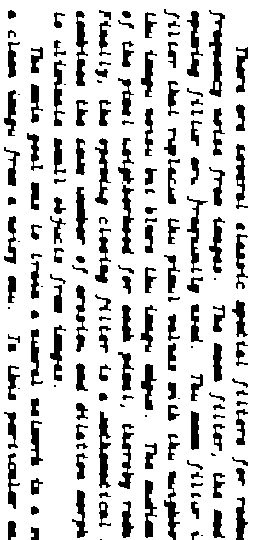 There are several classic spatial filters for
frequency noise from images. The mean filter, the
opening filter are frequently used. The mean filter
filter that replaces the pixel values with the
the image noise but blurs the image edges. The
of the pixel neighborhood for each pixel, thereby
Finally, the opening closing filter is a mathematical
combines the same number of erosion and dilation
to eliminate small objects from images.
The main goal was to train a neural network in a
a clean image from a noisy one. In this particular